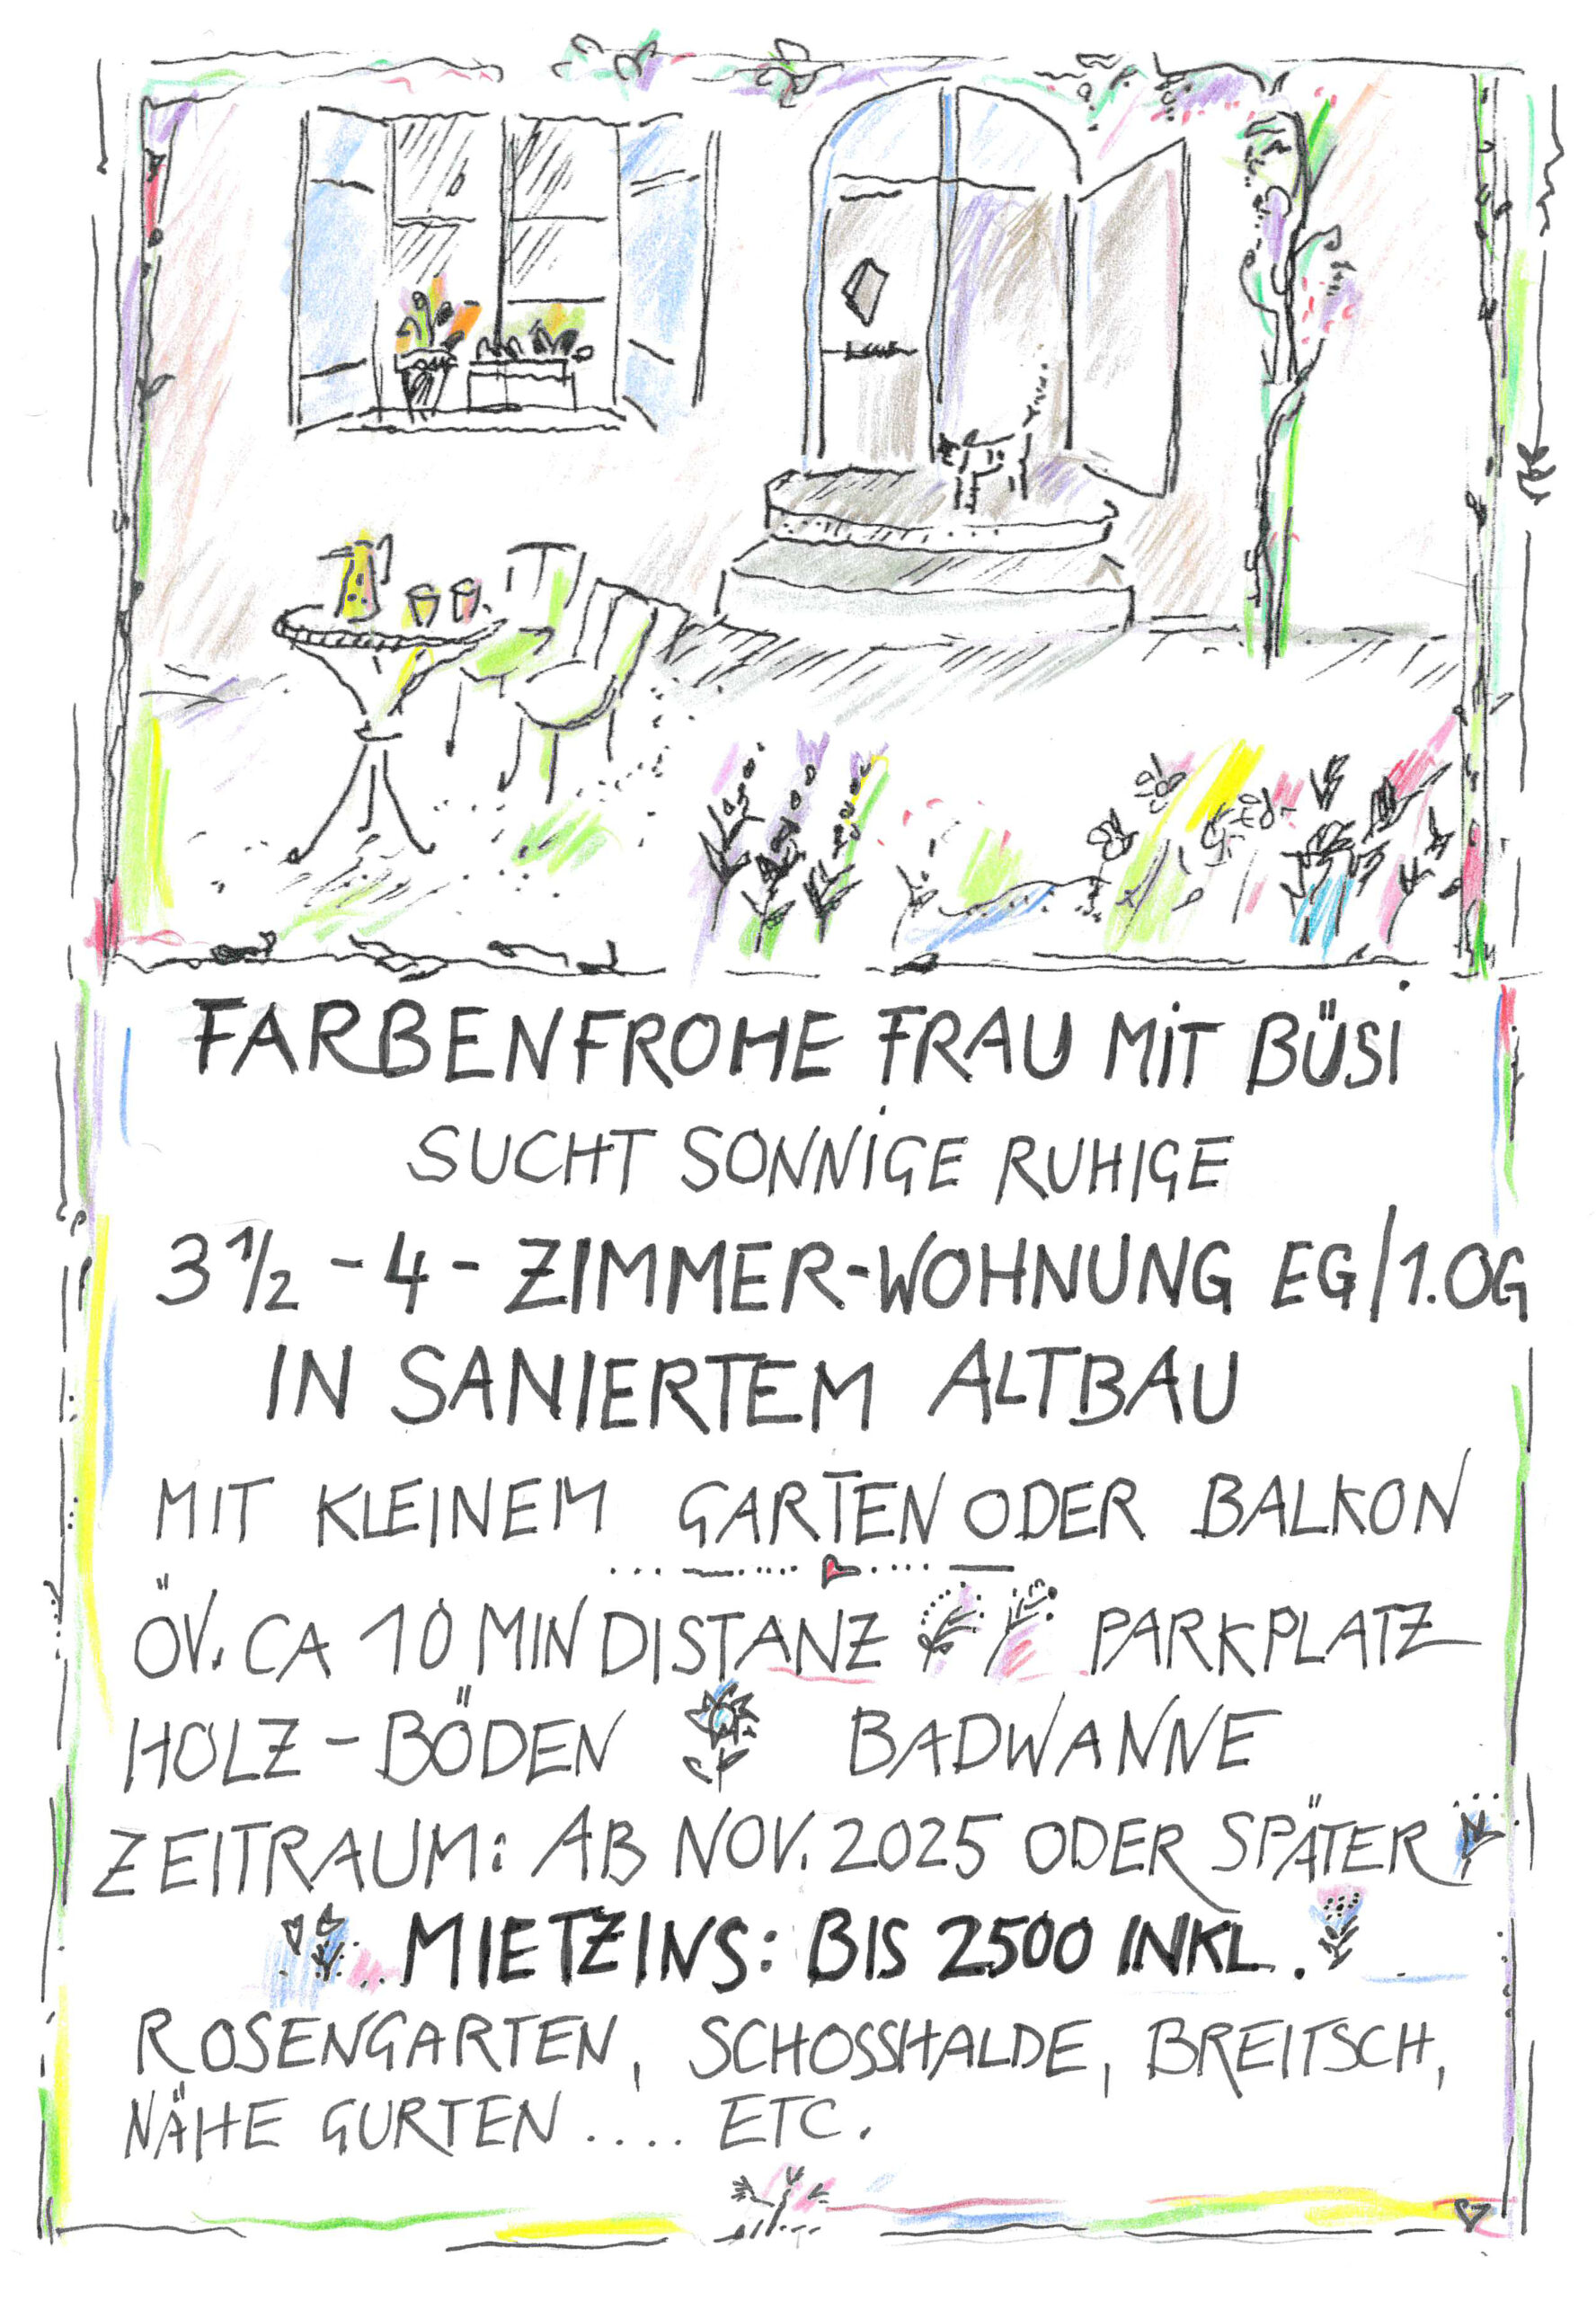 FARBENFROHE FRAU MIT BÜSI
SUCHT SONNIGE RUHIGE
3 1/2 - 4 - ZIMMER-WOHNUNG EG/1.OG
IN SANIERTEM ALTBAU
MIT KLEINEM GARTEN ODER BALKON
ÖV. CA 10 MIN DISTANZ PARKPLATZ
HOLZ-BÖDEN BADWANNE
ZEITRAUM: AB NOV. 2025 ODER SPÄTER
MIETZINS: BIS 2500 INKL.
ROSENGARTEN, SCHOSSHALDE, BREITSCH,
NÄHE GURTEN .... ETC.